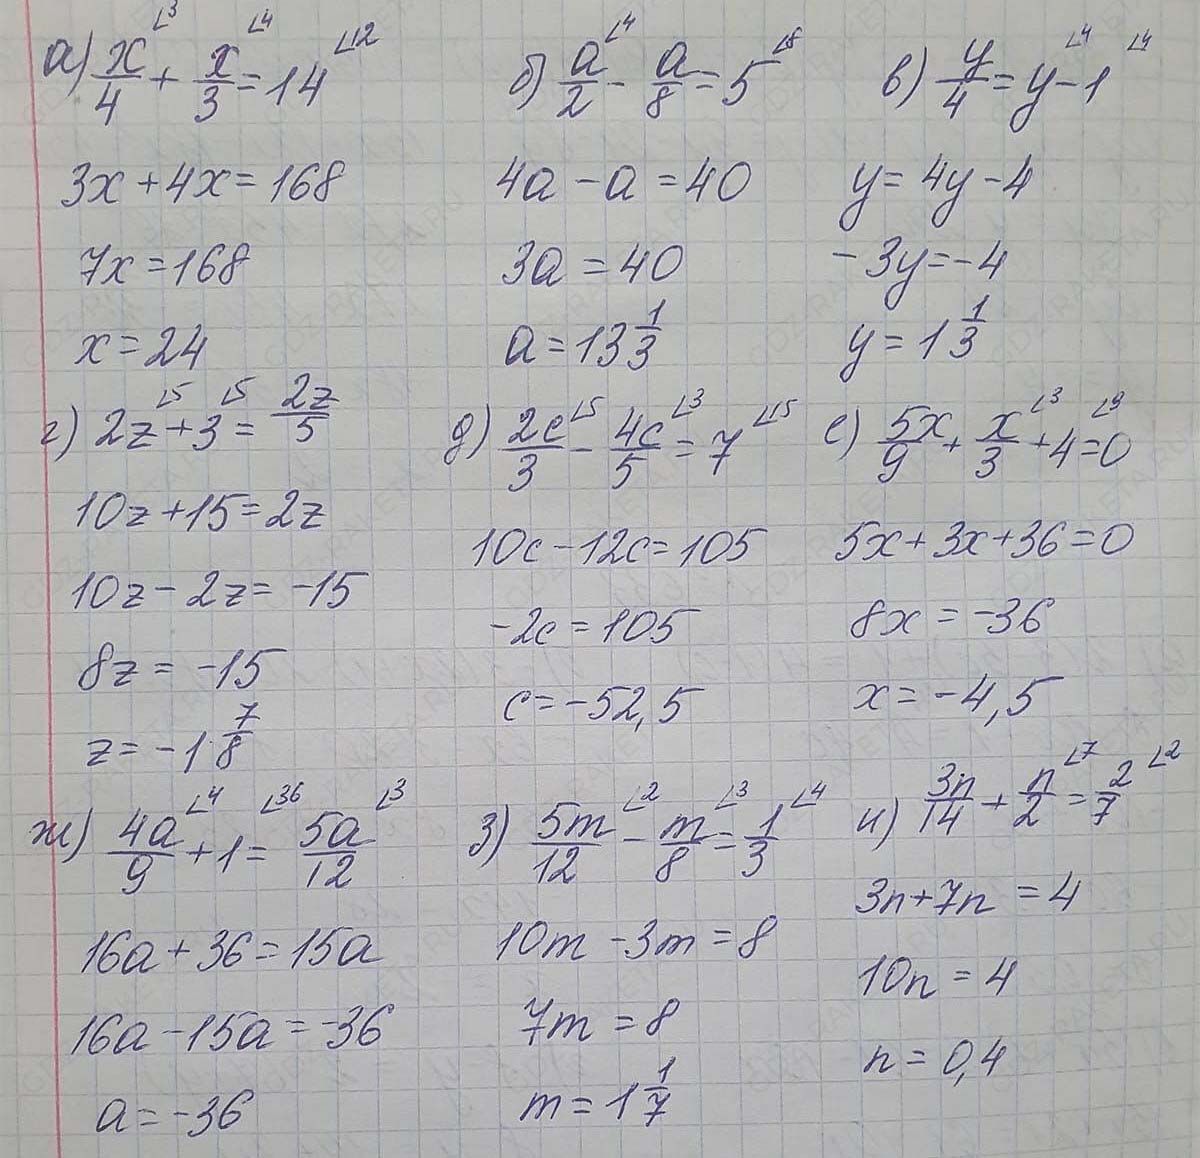 а) x/4 ∟3 + x/3 ∟4 = 14 ∟12
3x + 4x = 168
7x = 168
x = 24
б) a/2 ∟4 - a/8 = 5 ∟8
4a - a = 40
3a = 40
a = 13 1/3
в) y/4 = y ∟4 - 1 ∟4
y = 4y - 4
-3y = -4
y = 1 1/3
г) 2z ∟5 + 3 ∟5 = 2z/5
10z + 15 = 2z
10z - 2z = -15
8z = -15
z = -1 7/8
д) 2c/3 ∟5 - 4c/5 ∟3 = 7 ∟15
10c - 12c = 105
-2c = 105
c = -52,5
е) 5x/9 + x/3 ∟3 + 4 ∟9 = 0
5x + 3x + 36 = 0
8x = -36
x = -4,5
ж) 4a/9 ∟4 + 1 ∟36 = 5a/12 ∟3
16a + 36 = 15a
16a - 15a = -36
a = -36
з) 5m/12 ∟2 - m/8 ∟3 = 1/3 ∟4
10m - 3m = 8
7m = 8
m = 1 1/7
и) 3n/14 + n/2 ∟7 = 2/7 ∟2
3n + 7n = 4
10n = 4
n = 0,4